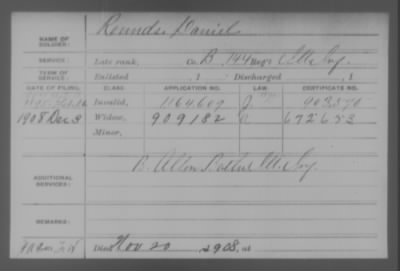 NAME OF SOLDIER: Rounds, Daniel
SERVICE: Late rank, Co. B, 144 Reg't Ills Inf.
TERM OF SERVICE: Enlisted , 1 Discharged , 1
DATE OF FILING. CLASS. APPLICATION NO. LAW. CERTIFICATE NO.
Invalid, 1164607 903370
1908 Dec 3 Widow, 909182 672653
Minor,
ADDITIONAL SERVICES: B. Alton Ills Inf.
REMARKS:
Died Nov 20 1908, at